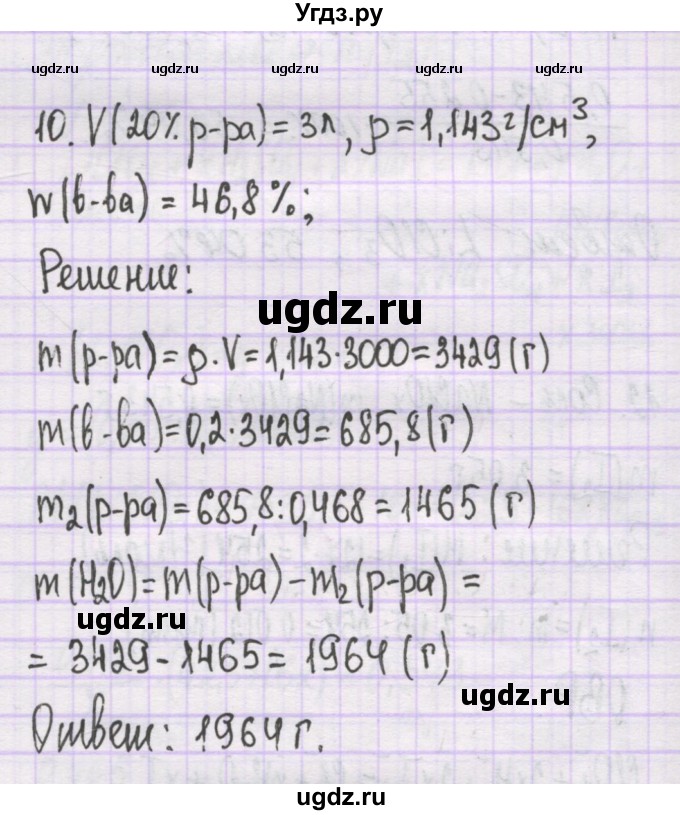 Угдз.ру
ugdz.ru ugdz.ru ugdz.ru ugdz.ru ugdz.ru ugdz.ru
10. V(20% р-ра) = 3л, ρ = 1,143г/см³,
w(в-ва) = 46,8%;
Решение:
ugdz.ru
m(р-ра) = ρ·V = 1,143·3000 = 3429(г)
m(в-ва) = 0,2·3429 = 685,8(г)
m₂(р-ра) = 685,8:0,468 = 1465(г)
m(H₂O) = m(р-ра) – m₂(р-ра) =
ugdz.ru
= 3429 – 1465 = 1964(г)
ugdz.ru
Ответ: 1964г.
ugdz.ru